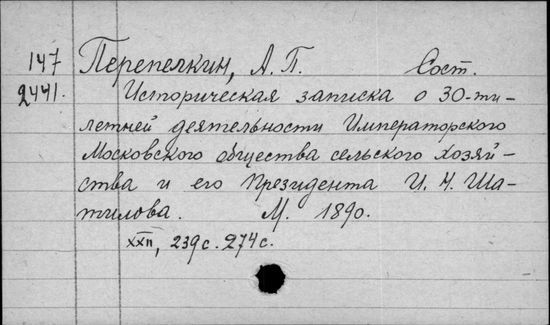 147 Перепелкин, А. П. Сост.
2441. Историческая записка о 30-ти-
летней деятельности Императорского
Московского общества сельского хозяй-
ства и его Президента И. Н. Ша-
тилова. М. 1890.
XXII, 239 с. 274 с.